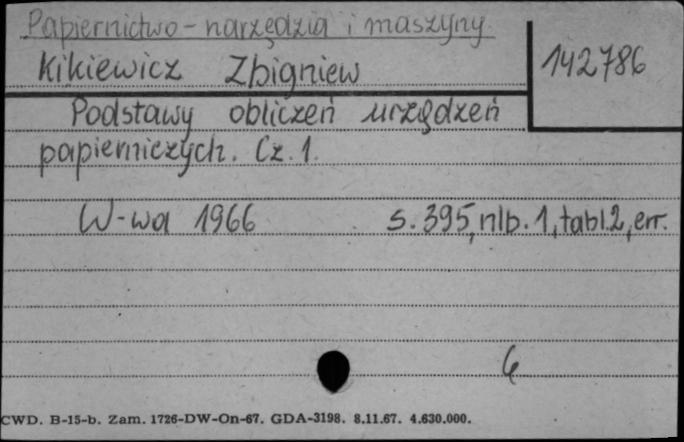 Papiernictwo - narzędzia i maszyny.
Kikiewicz Zbigniew
142786
Podstawy obliczeń urządzeń
papierniczych. Cz. 1.
W-wa 1966 s. 395, nlb. 1, tabl. 2, err.
6
CWD. B-15-b. Zam. 1726-DW-On-67. GDA-3198. 8.11.67. 4.630.000.